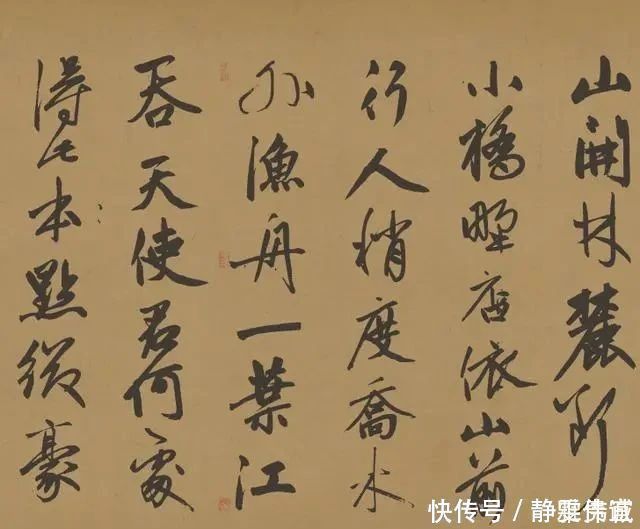 山開林麓斷
小橋野店依山前
行人稍度喬木
外漁舟一葉江
吞天使君何處
得此本點綴豪
快传号/